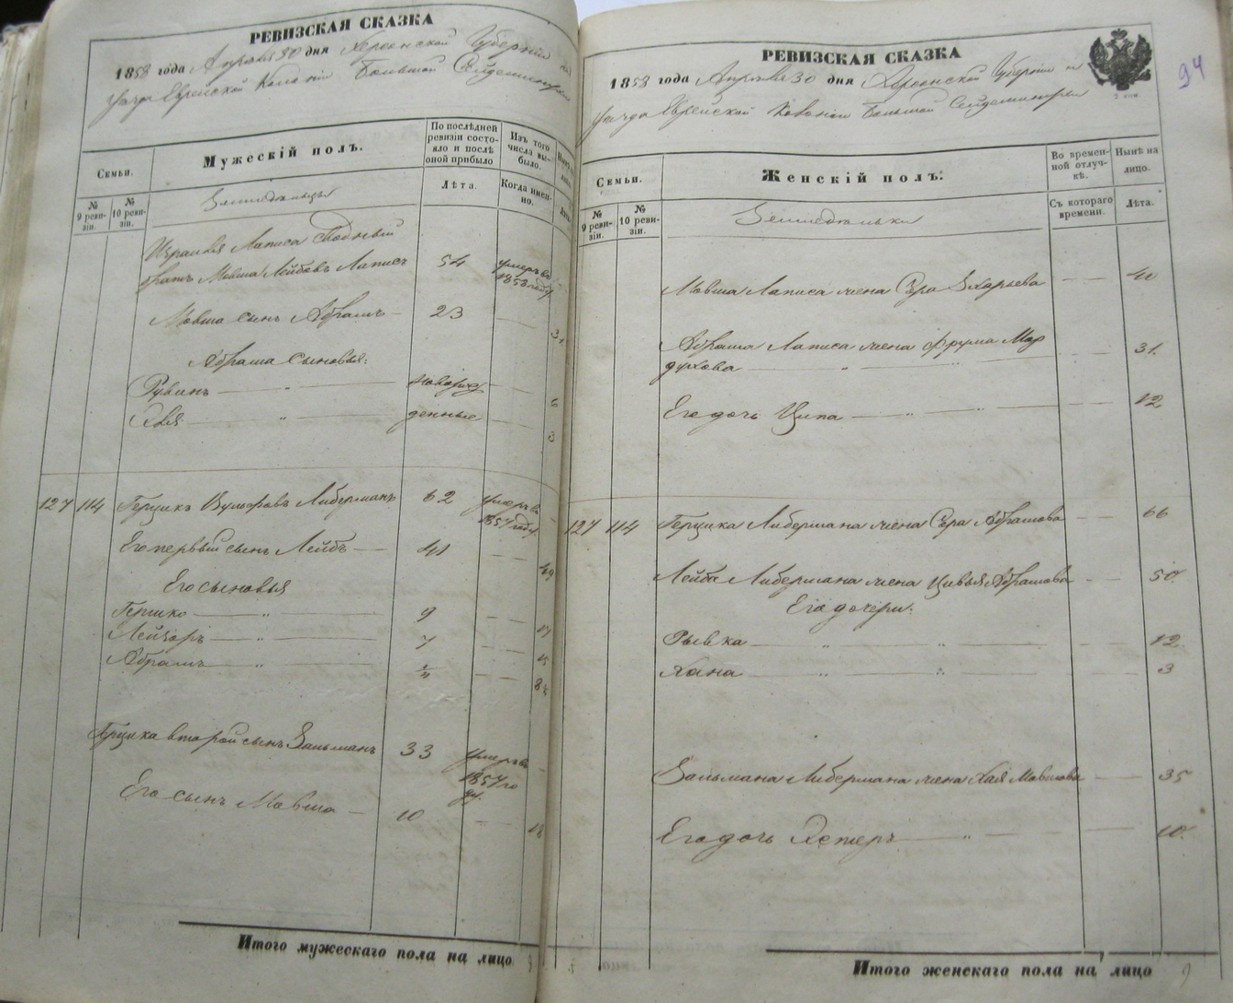 РЕВИЗСКАЯ СКАЗКА
1858 года Апреля 30 дня Херсонской Губерніи
уезда Еврейской Колоніи Большой Сейдеминухи
Семьи.
Мужескій полъ.
По послѣдней ревизіи состояло и послѣ оной прибыло
Изъ того числа выбыло.
Лѣта.
Когда именно.
№ 9 ревизіи.
№ 10 ревизіи.
Земледѣльцы
Израиля Лаписа
братъ Мовша Лейбовъ Лаписъ 54 умеръ въ 1858 году
Мовша сынъ Абрамъ 23 31
Абрама сыновья:
Рувинъ " новорож
" денные
127 114 Гершка Вульфовъ Либерманъ 62 умеръ въ 1857 году
Его первый сынъ Лейба 41 49
Его сыновья
Гершко " 9 17
Лейзоръ " 7 15
Абрамъ "
Гершка второй сынъ Зальманъ 33 умеръ въ 1857 году
Его сынъ Мовша 10 18
Итого мужескаго пола на лицо 9
РЕВИЗСКАЯ СКАЗКА
94
1858 года Апреля 30 дня Херсонской Губерніи
уезда Еврейской Колоніи Большой Сейдеминухи
Семьи.
Женскій полъ.
Во временной отлучкѣ.
Нынѣ на лицо.
Съ котораго времени.
Лѣта.
№ 9 ревизіи.
№ 10 ревизіи.
Земледѣльки
Мовша Лаписа жена Сура
Абрама Лаписа жена Фрума Мор
духова " " 31
Его дочь Ципа " " 12
127 114 Гершка Либермана жена Сура Абрамова 66
Лейба Либермана жена Цивья Абрамова 50
Его дочери:
Рывка " " 12
Хана " " 3
Зальмана Либермана жена Хая Мовшова 35
Его дочь Эстеръ " 10
Итого женскаго пола на лицо 9